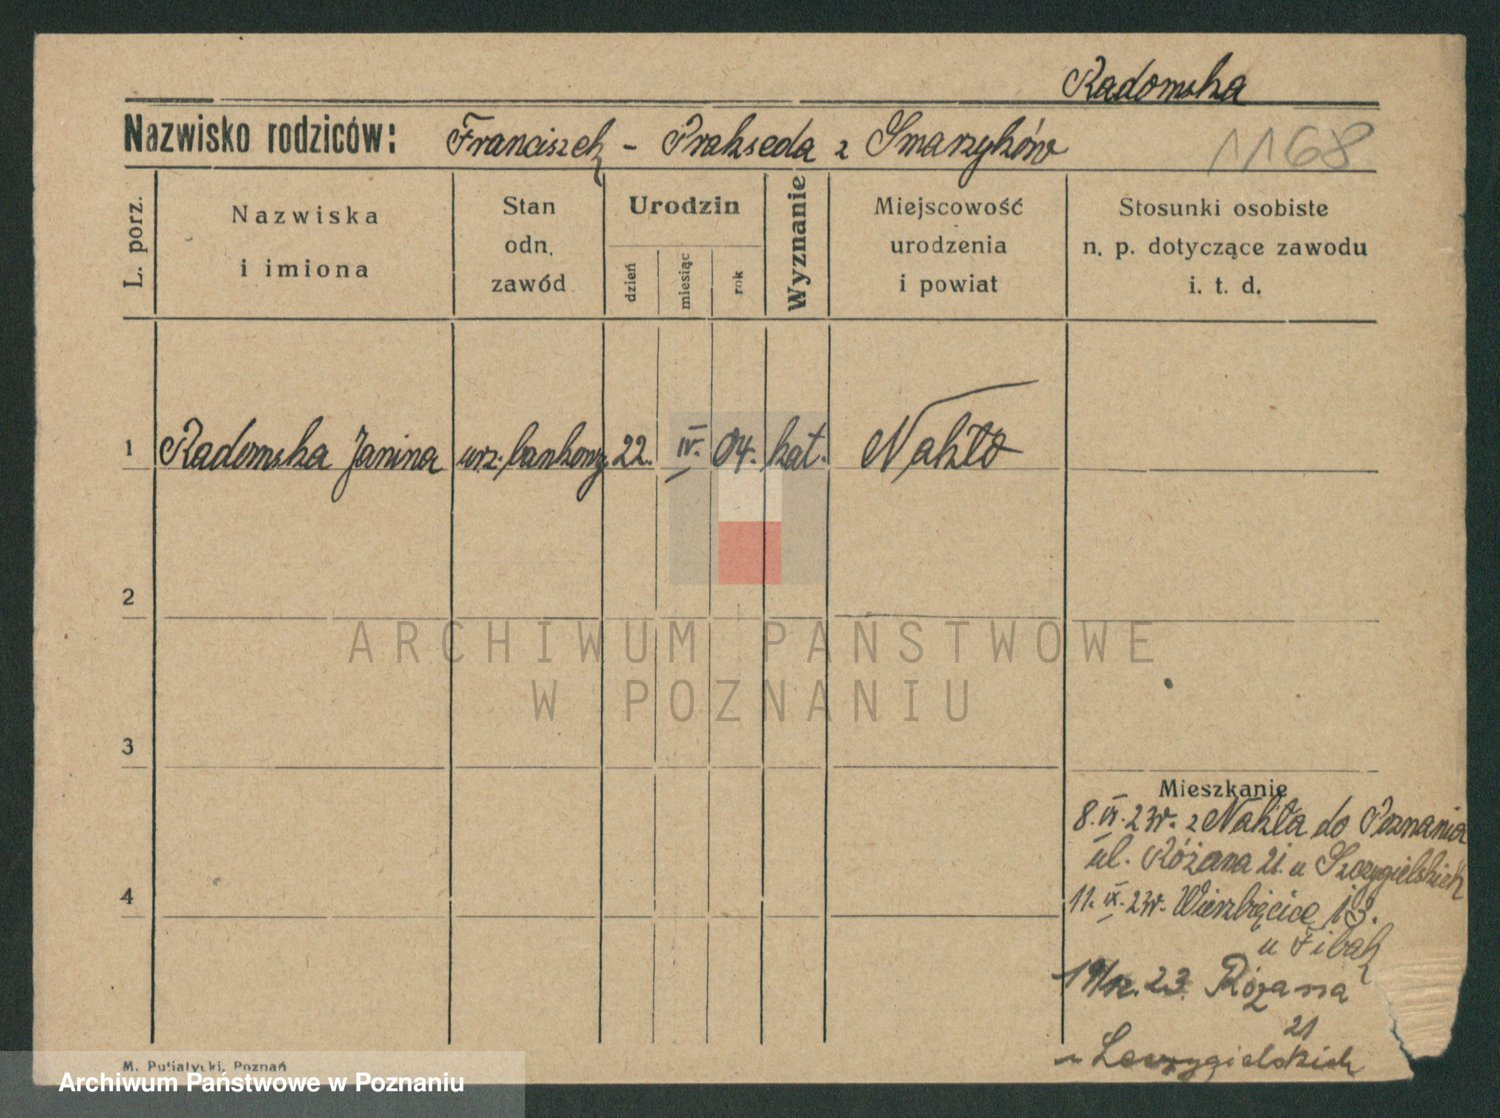 Radomska
Nazwisko rodziców: Franciszek - Prakseda z Smarzyków 1168
L. porz.
Nazwiska
i imiona
Stan
odn.
zawód
Urodzin
dzień
miesiąc
rok
Wyznanie
Miejscowość
urodzenia
i powiat
Stosunki osobiste
n. p. dotyczące zawodu
i. t. d.
1 Radomska Janina urz. bankowy 22. IV. 04. kat. Nakło
2
ARCHIWUM PAŃSTWOWE
W POZNANIU
3
Mieszkanie
8. 23r. z Nakła do Poznania
ul. Różana 21. u Szczygielskich
4
11. IX. 23r. Wierzbięcice 13.
u Fibak
23. Różana
21
u Szczygielskich
M. Putiatycki, Poznań
Archiwum Państwowe w Poznaniu